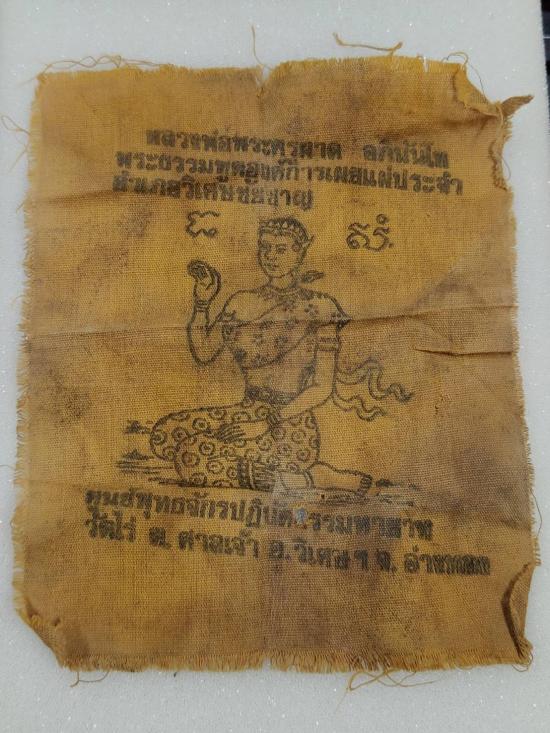 หลวงพ่อพระครูผาด อภินันโท
พระธรรมทูตองค์การเผยแผ่ประจำ
อำเภอวิเศษชัยชาญ
ศูนย์พุทธจักรปฏิบัติธรรมมหาสาท
วัดไร่ ต. ศาลเจ้า อ.วิเศษฯ จ. อ่างทอง